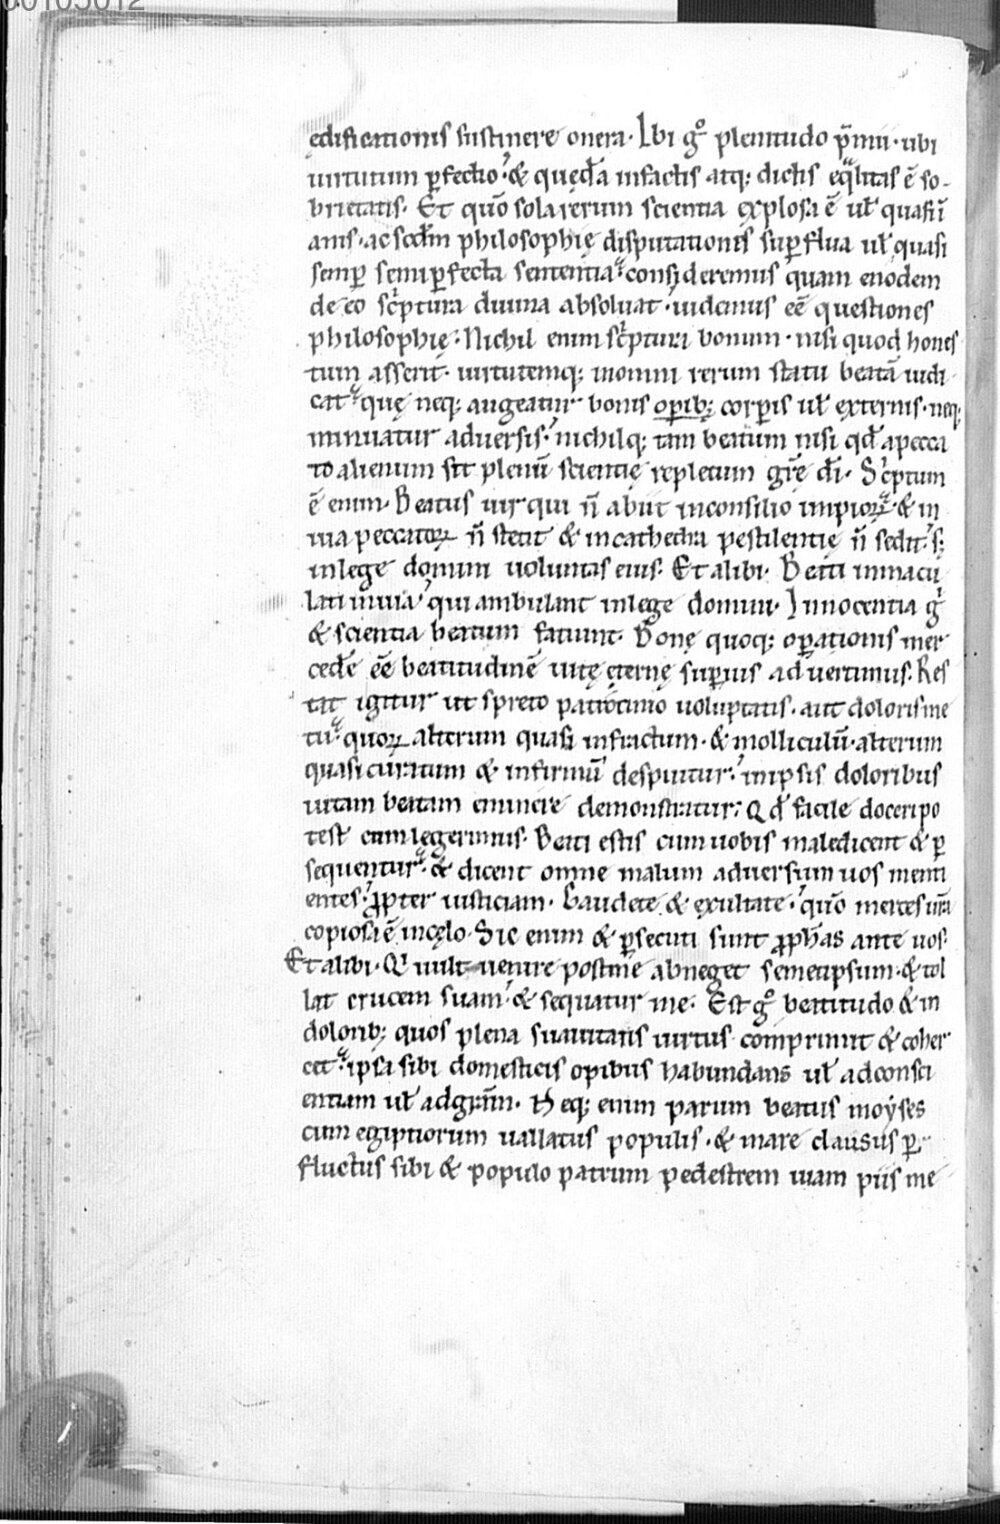 00105012
ędificationis sustinere onera· Ibi gͦ plenitudo p̄mii· ubi
uirtutum ꝑfectio· & quędā infactis atq; dictis eq̄litas ē so-
brietatis· Et quō sola rerum scientia explosa ē ul̄ quasi iī
anis· ac scd̄m philosophię disputationis suꝑflua ul̄ quasi
semꝑ semiꝑfecta sententia· consideremus quam enodem
de eo sc̓ptura diuina absoluat· uidemus eē questiones
philosophię· Nichil enim sc̓ptura bonum· nisi quod hones
tum asserit· uirtutemq; inomni rerum statu beatā iudi
cat· quę neq; augeatur bonis oꝑib; corꝑis ul̄ externis· neq;
minuatur aduersis· nichilq; tam beatum nisi qđ apecca
to alienum sit plenū scientię repletum gr̄ę dī· Sc̓ptum
ē enim· Beatus uir qui n̄ abiit inconsilio impioꝝ· & in
uia peccatoꝝ n̄ stetit & incathedra pestilentię n̄ sedit· s;
inlege domini uoluntas eius· Et alibi· Beati inmacu
lati inuia· qui ambulant inlege domini· Innocentia g̓
& scientia beatum faciunt· Bonę quoq; oꝑationis mer
cedē eē beatitudinē uitę ęternę suꝑius aduertimus· Res
tat igitur ut spreto patrocinio uoluptatis· aut doloris me
tu· quoꝝ alterum quasi infractum· & molliculū· alterum
quasi curatum & infirmū despuitur· inipsis doloribus
uitam beatam eminere demonstratur· Qđ facile doceri po
test cum legerimus· Beati estis cum uobis maledicent & ꝑ
sequentur· & dicent omne malum aduersum uos menti
entes· ꝓpter iusticiam· Gaudete & exultate· quō merces ur̄a
copiosa ē incęlo· Sic enim & ꝑsecuti sunt ꝓph̄as ante uos·
Et alibi· Q̓ uult uenire postme abneget semetipsum· & tol
lat crucem suam· & sequatur me· Est gͦ beatitudo & in
dolorib; quos plena suauitatis uirtus comprimit & coher
cet· ipsa sibi domesticis opibus habundans ul̄ adconsci
entiam ul̄ adgr̄am· Neq; enim parum beatus moyses
cum egiptiorum uallatus populis· & mare clausus ꝑ
fluctus sibi & populo patrum pedestrem uiam piis me